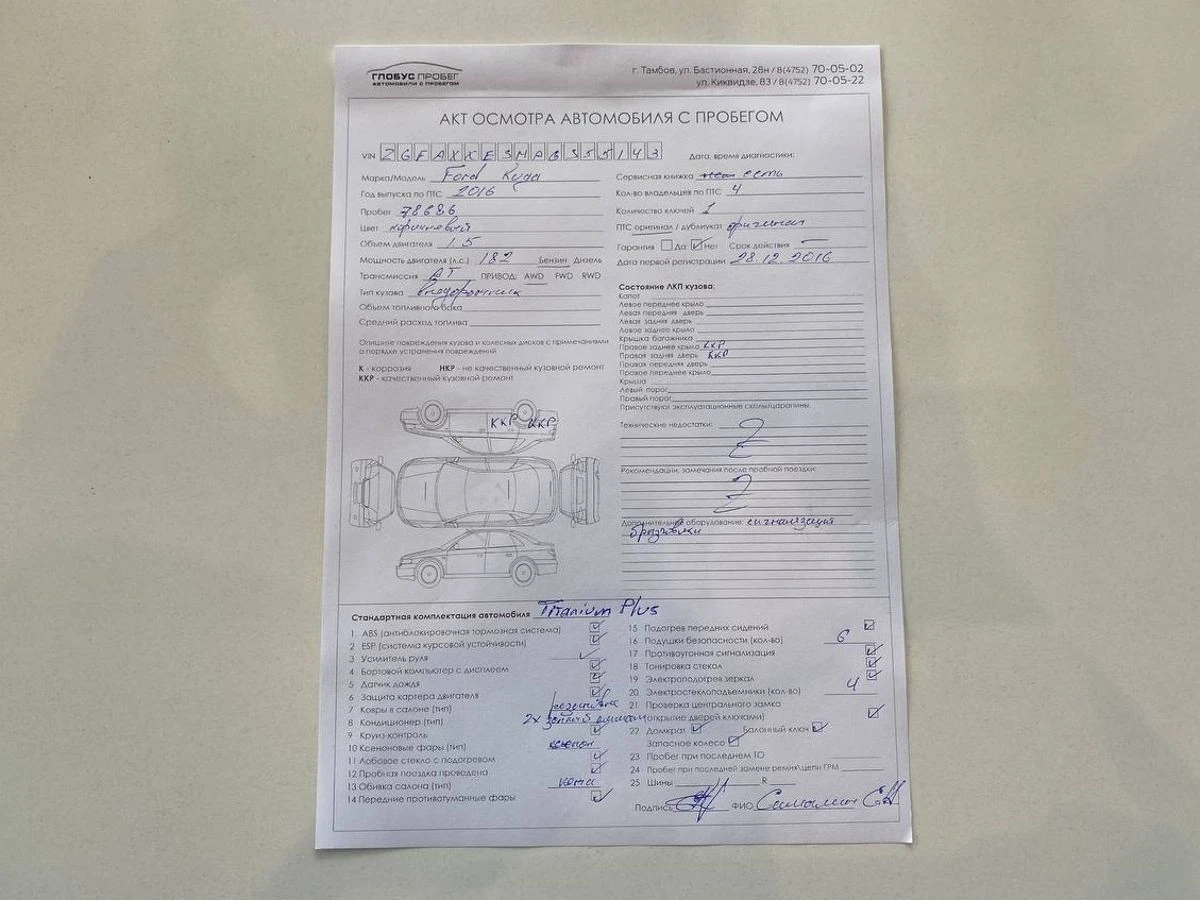 ГЛОБУС ПРОБЕГ
АВТОМОБИЛИ С ПРОБЕГОМ
г. Тамбов, ул. Бастионная, 28н / 8(4752) 70-05-02
ул. Киквидзе, 83 / 8(4752) 70-05-22
АКТ ОСМОТРА АВТОМОБИЛЯ С ПРОБЕГОМ
VIN
Дата, время диагностики:
Марка/Модель Ford Kuga
Год выпуска по ПТС 2016
Пробег 78686
Цвет коричневый
Объем двигателя 1.5
Мощность двигателя (л.с.) 182 Бензин Дизель
Трансмиссия АТ ПРИВОД: AWD FWD RWD
Тип кузова внедорожник
Объем топливного бака
Средний расход топлива
Сервисная книжка есть
Кол-во владельцев по ПТС 4
Количество ключей 1
ПТС оригинал / дубликат оригинал
Гарантия Да Нет Срок действия —
Дата первой регистрации 28.12.2016
Опишите повреждения кузова и колесных дисков с примечаниями
о порядке устранения повреждений
К - коррозия НКР - не качественный кузовной ремонт
ККР - качественный кузовной ремонт
ККР ККР
Состояние ЛКП кузова:
Капот
Левое переднее крыло
Левая передняя дверь
Левая задняя дверь
Левое заднее крыло
Крышка багажника
Правое заднее крыло ККР
Правая задняя дверь ККР
Правая передняя дверь
Правое переднее крыло
Крыша
Левый порог
Правый порог
Присутствуют эксплуатационные сколы/царапины.
Технические недостатки:
Рекомендации, замечания после пробной поездки:
Дополнительное оборудование: сигнализация
брызговики
Стандартная комплектация автомобиля Titanium Plus
1 ABS (антиблокировочная тормозная система)
2 ESP (система курсовой устойчивости)
3 Усилитель руля
4 Бортовой компьютер с дисплеем
5 Датчик дождя
6 Защита картера двигателя
7 Ковры в салоне (тип)
8 Кондиционер (тип) 2х зонный климат
9 Круиз-контроль
10 Ксеноновые фары (тип) ксенон
11 Лобовое стекло с подогревом
12 Пробная поездка проведена
13 Обивка салона (тип) кожа
14 Передние противотуманные фары
15 Подогрев передних сидений
16 Подушки безопасности (кол-во) 6
17 Противоугонная сигнализация
18 Тонировка стекол
19 Электроподогрев зеркал
20 Электростеклоподъемники (кол-во) 4
21 Проверка центрального замка
(открытие дверей ключами)
22 Домкрат Балонный ключ
Запасное колесо
23 Пробег при последнем ТО
24 Пробег при последней замене ремня\цепи ГРМ
25 Шины R
Подпись ФИО